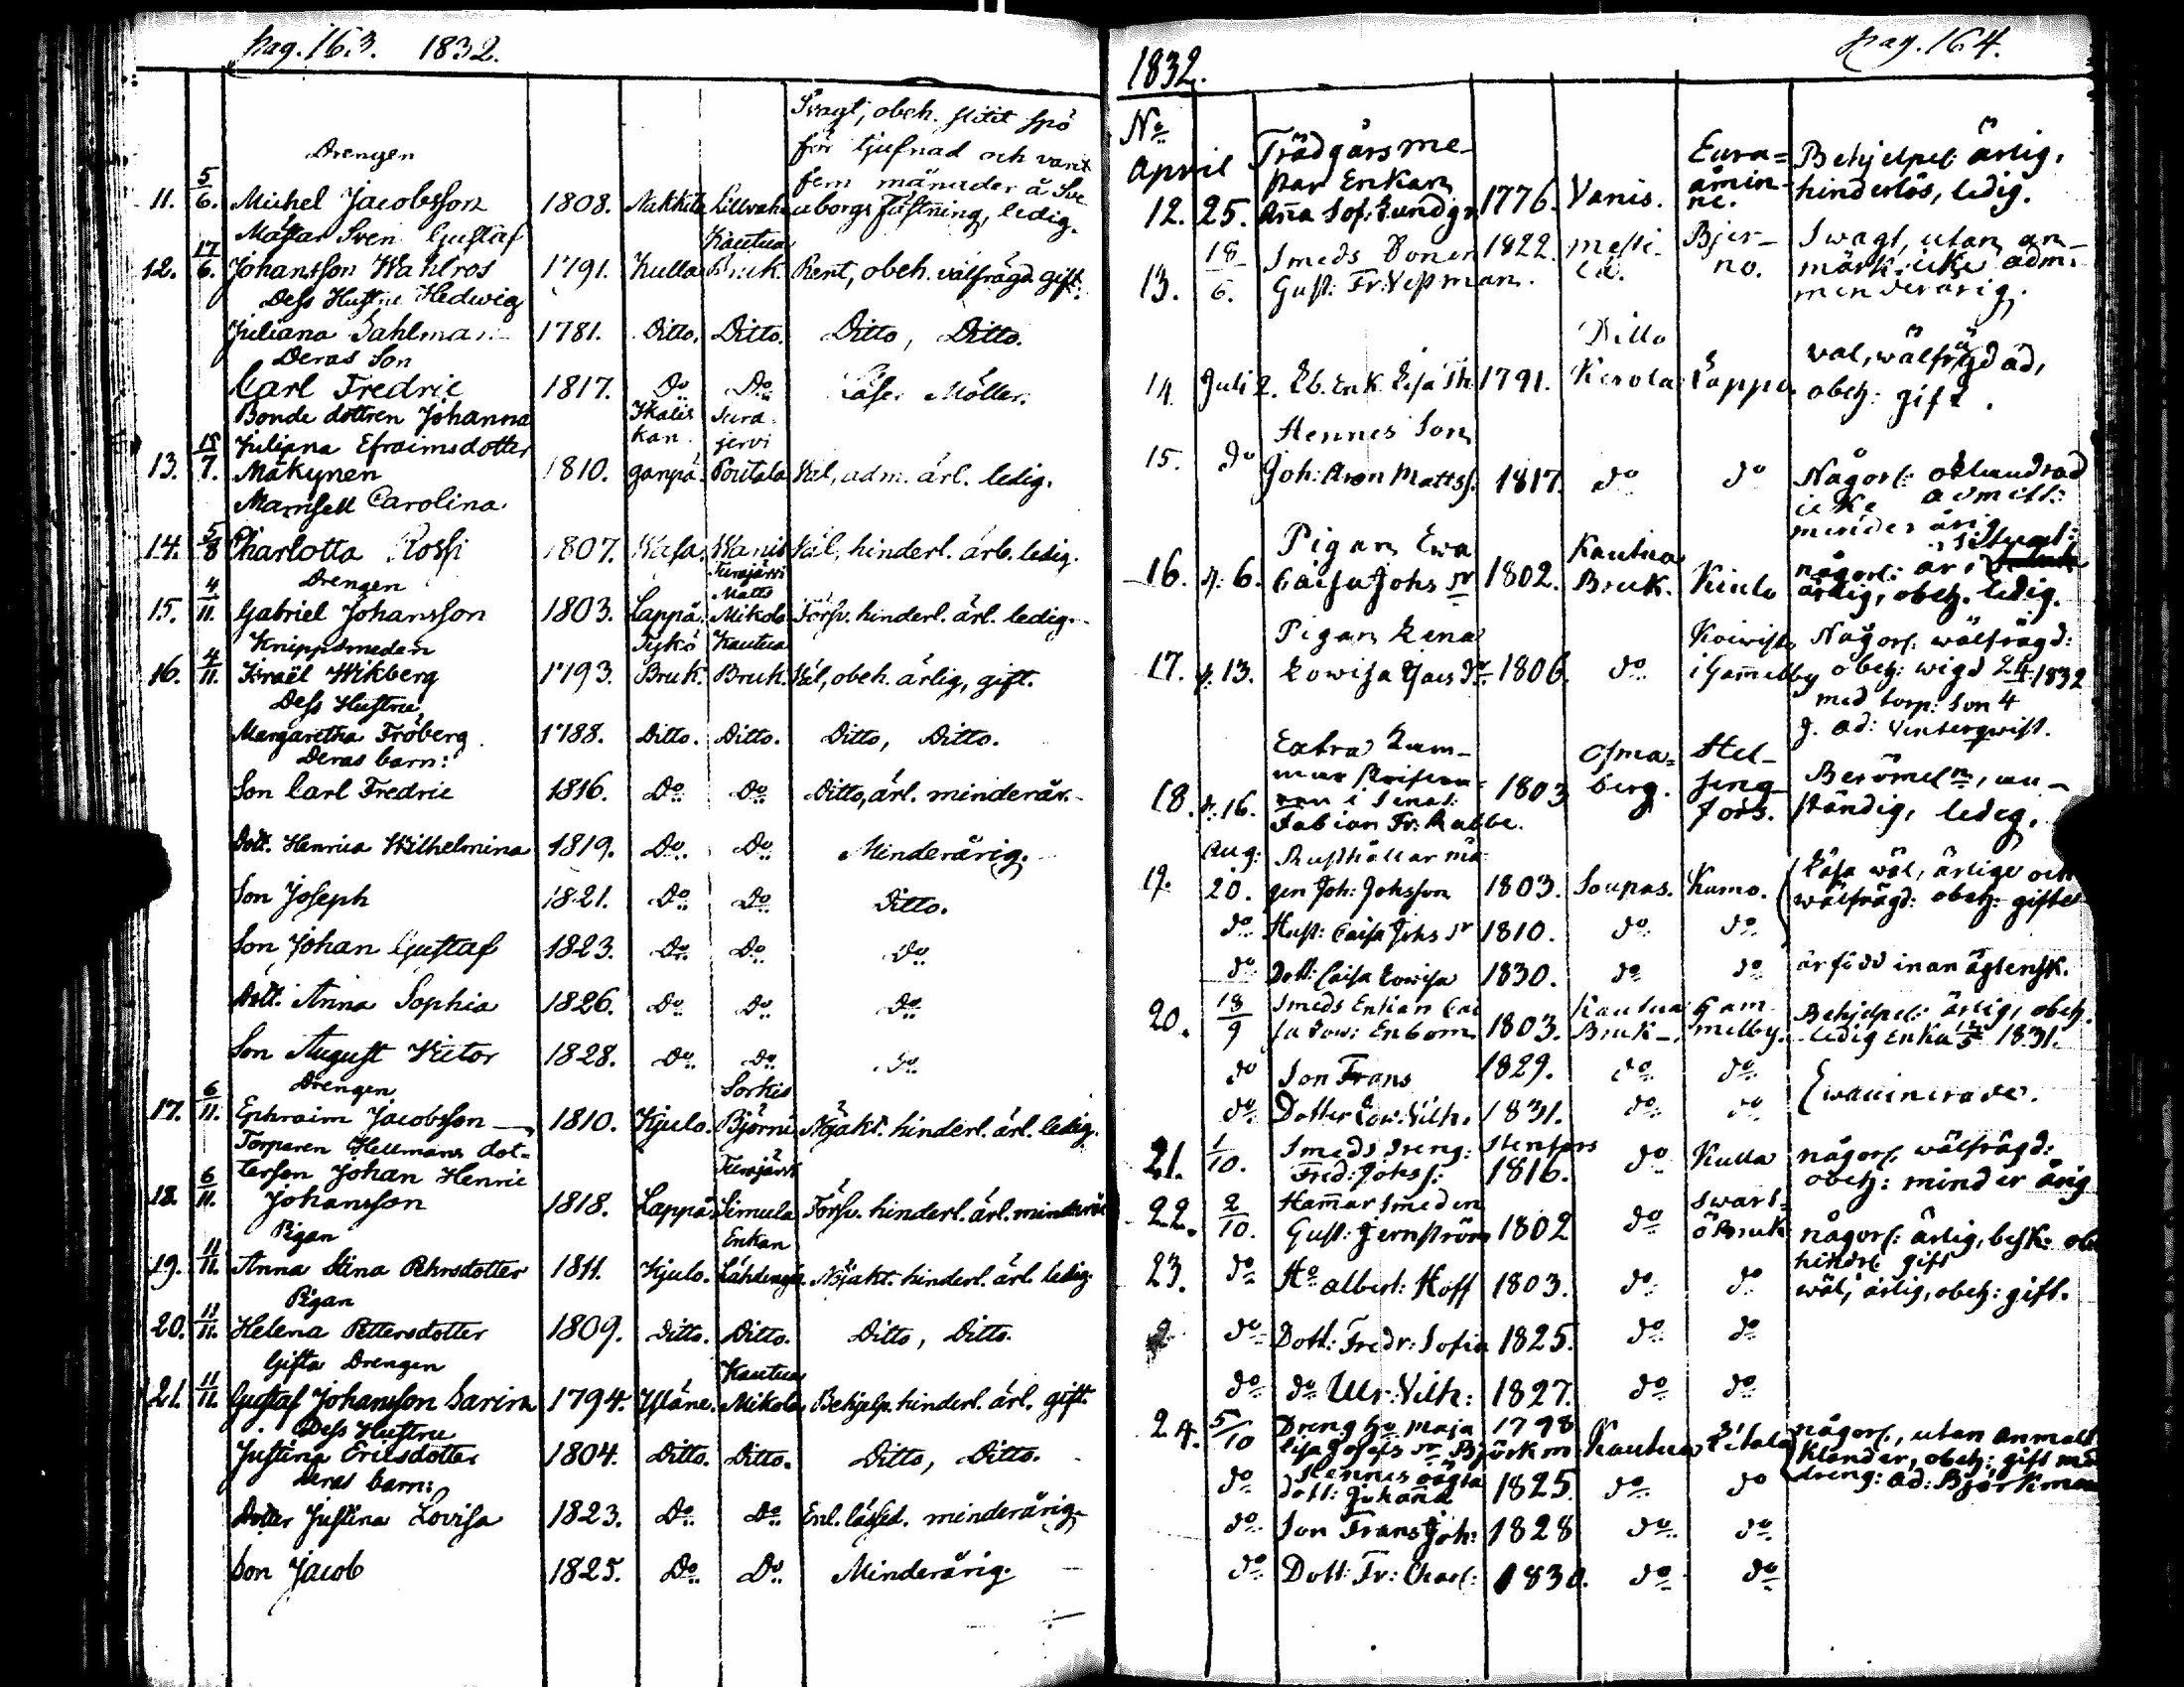 pag. 163. 1832.
Svagt, obeh. slitit spö
för tjufnad och varit
fem månader å Sve
aborgs fästning, ledig.
Drengen
11. 5/6. Michel Jacobsson 1808. Nakkila
Mästar Sven Gustaf
Kautua
12. 17/6. Johansson Wahlros 1791. Kulla Bruk. Rent, obeh. välfrägd. gift.
Dess Hustru Hedwig
Juliana Sahlman 1781. Ditto. Ditto. Ditto, Ditto.
Deras Son
Carl Fredric 1817. Do Do Möller.
Bonde dottren Johanna Ikalis
Juliana Efraimsdotter kan. jervi
13. 7. Mäkynen 1810. Poutala Väl, adm. ärl. ledig.
Mamsell Carolina
14. 5/8 Charlotta Rossi 1807. Wasa. Wanis Väl, hinderl. ärb. ledig.
Drengen Turajärvi
Matts
15. 4/11. Gabriel Johansson 1803. Lappä. Mikola Försv. hinderl. ärl. ledig.
Knippsmeden Tykö Kautua
16. 4/11. Israël Wikberg 1793. Bruk. Bruk. Väl, obeh. ärlig, gift.
Dess Hustru
Margaretha Fröberg 1788. Ditto. Ditto. Ditto, Ditto.
Deras barn:
Son Carl Fredric 1816. Do Do Ditto, ärl. minderår.
Dott. Henrica Wilhelmina 1819. Do Do Minderårig.
Son Joseph 1821. Do Do Ditto.
Son Johan Gustaf 1823. Do Do Do
Dott. Anna Sophia 1826. Do Do Do
Son August Victor 1828. Do Do Do
Drengen Sorkis
17. 6/11. Ephraim Jacobsson 1810. Kjulo. Björni Nöjakt. hinderl. ärl. ledig.
Torparen Hellmans dot=
terson Johan Henric Turajärvi
18. 6/11. Johansson 1818. Lappä Simula Försv. hinderl. ärl. minderår
Pigan Enkan
19. 11/11. Anna Stina Pehrsdotter 1811. Kjulo. Nöjakt. hinderl. ärl. ledig.
Pigan
20. 11/11. Helena Pettersdotter 1809. Ditto. Ditto. Ditto, Ditto.
Gifta Drengen Kautua
21. 11/11. Gustaf Johansson Sarin 1794. Yläne. Mikola Behjelp. hinderl. ärl. gift.
Dess Hustru
Justina Ericsdotter 1804. Ditto. Ditto. Ditto, Ditto.
Deras barn:
Dotter Justina Lovisa 1823. Do Do Enl. minderårig.
Son Jacob 1825. Do Do Minderårig.
1832. pag. 164.
No
April Trädgårsme-
star Enkan Eura= Behjelpel: ärlig,
12. 25. Aña Sof: Lundgr 1776. Vanis. åmin-ne. hinderlös, ledig.
13. 18/6. Smeds Sonen 1822. Bjer-no. Swagt, utan an-
Gust: Fr: Vessman. märk: icke adm:
minderårig.
Ditto
14. Juli 2. 1791. Kerola Lappi väl, wälfrägdad,
obeh: gift.
Hennes Son
15. do Joh: Aron Mattss. 1817. do do Någorl:
icke admitt:
minder årig
Pigan Ewa Kautua
16. d: 6. Caisa Johs dr 1802. Bruk. Kiulo någorl:
ärlig, obeh. ledig.
Pigan Lena
17. d. 13. Lowisa Jacs dr 1806. do i Gam̃elby Någorl. wälfrägd:
obeh: wigd 1832
med torp: Son
J. Ad: Vinterqwist.
Extra Kam-
18. d: 16. i Senat: 1803 berg. Hel-sing-fors. Berömeln, an-
Fabian Fr: Rabbe. ständig, ledig.
Aug: Rusthållar må-
19. 20. gen Joh: Johsson 1803. Soupas. Kumo. Läsa wäl, ärlige och
wälfrägd: obeh: gifte
do Hust: Caisa Johs dr 1810. do do
do Dott: Caisa Lowisa 1830. do do är född inan äktensk.
20. 18/9 Smeds Enkan Cai Kautua Gam-
sa Low: Enbom 1803. Bruk melby. Behjelpel: ärlig, obeh.
ledig Enka 1831.
do Son Frans 1829. do do
do Dotter Low: Vilh. 1831. do do waccinerade.
21. 1/10. Smeds dreng: Stenfors
Fred: Johss: 1816. do Kulla någorl. wälfrägd:
obeh: minder årig
22. 2/10. Ham̃ar Smeden Swart-
Gust: Jernström 1802 do å Bruk någorl: ärlig, besk: obe
hindrl gift
23. do Ho Albert: Hoff 1803. do do wäl, ärlig, obeh: gift.
do Dott: Fredr: Sofia 1825. do do
do do Ulr: Vilh: 1827. do do
24. 5/10 Dreng hu Maja 1798
Lisa Josefs dr Björkm Kautua någorl, utan anmält
Klander, obeh: gift med
dreng: Ad: Björkman
do Hennes oägta
dott: Juhaña 1825. do do
do Son Frans Joh: 1828 do do
do Dott: Fr: Charl: 1830. do do